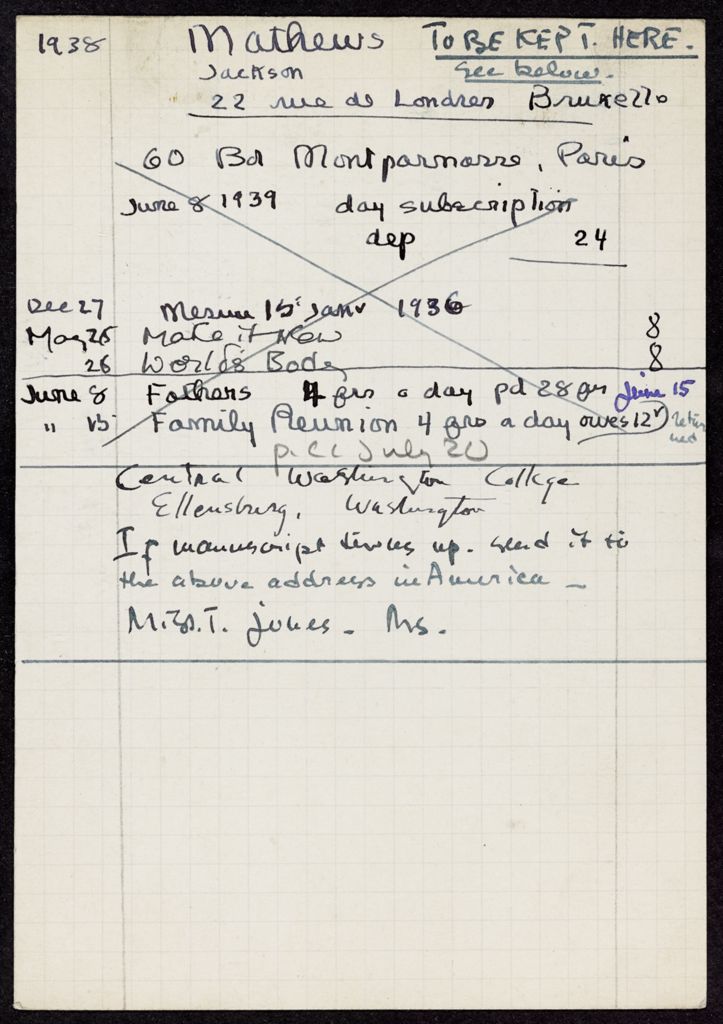 1938 Mathews TO BE KEPT. HERE.
Jackson See below.
22 rue de Londres Bruxelles
60 Bd Montparnasse, Paris
June 8 1939 day subscription
dep 24
Dec 27 Mesure 15 Janv 1936
May 26 Make it New 8
26 World's Body 8
June 8 Fathers 4 frs a day pd 28 frs June 15
" 15 Family Reunion 4 frs a day owes 12 returned
July 20
Central Washington College
Ellensburg, Washington
If manuscript turns up. send it to
the above address in America —
M. T. Jones. Ms.